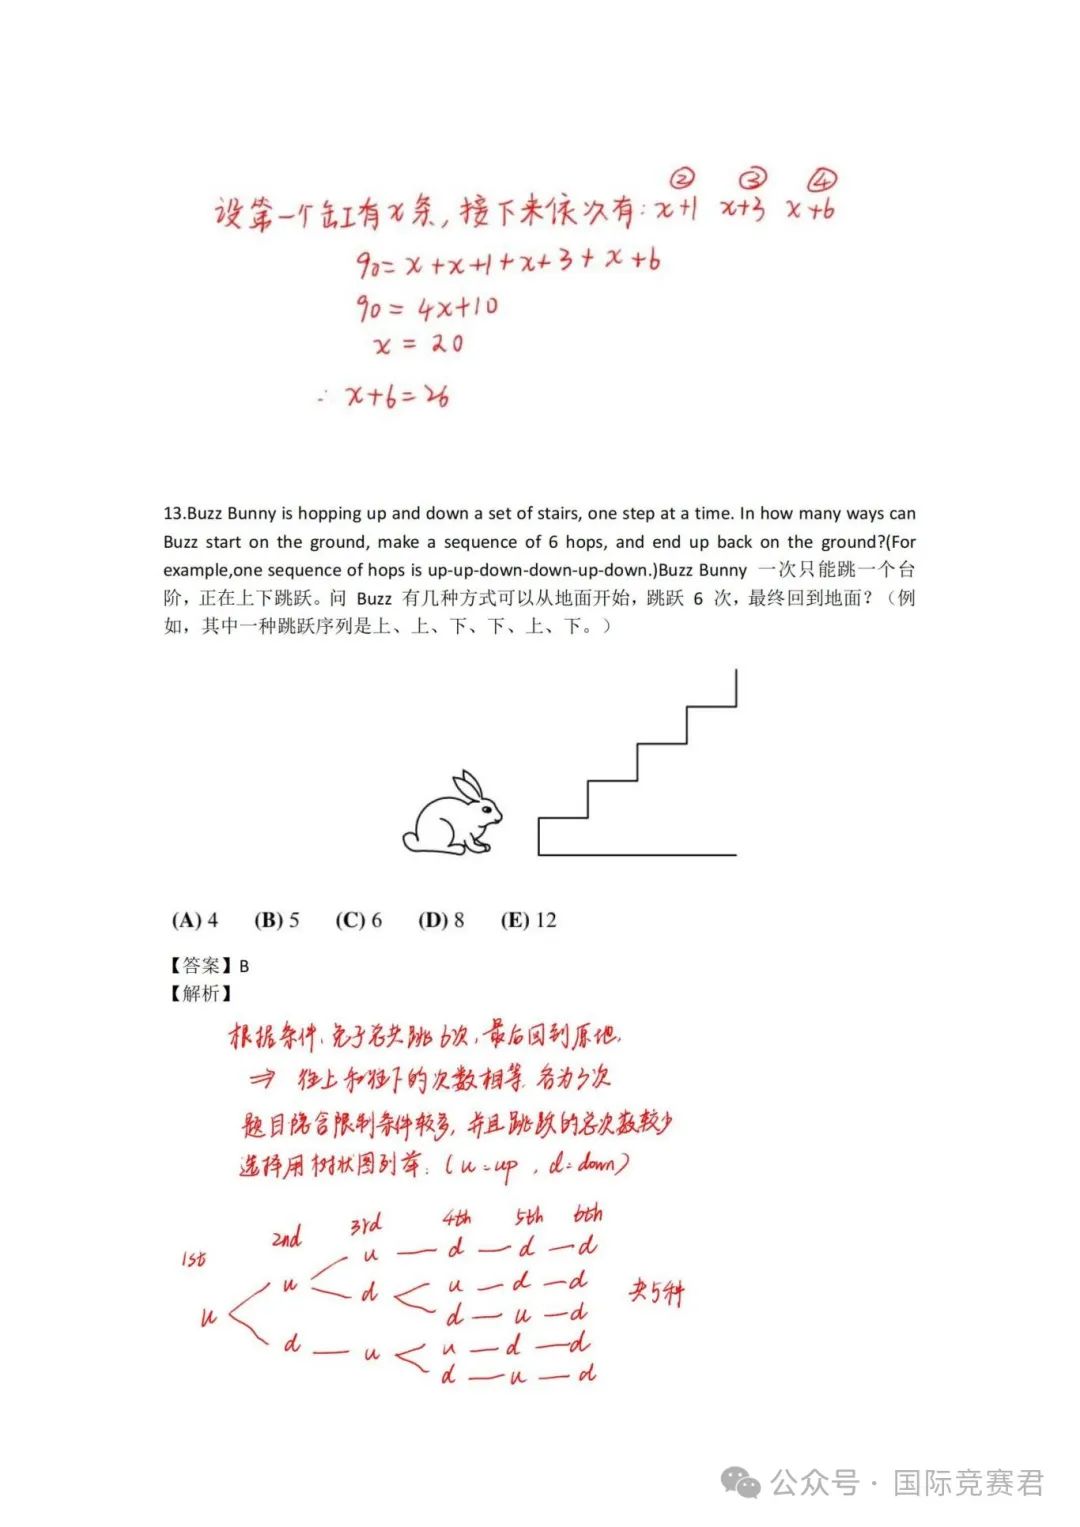 ② ③ ④
设第一个缸有x条,接下来依次有:x+1 x+3 x+6
90=x+x+1+x+3+x+6
90=4x+10
x=20
∴ x+6=26
13.Buzz Bunny is hopping up and down a set of stairs, one step at a time. In how many ways can
Buzz start on the ground, make a sequence of 6 hops, and end up back on the ground?(For
example,one sequence of hops is up-up-down-down-up-down.)Buzz Bunny 一次只能跳一个台
阶，正在上下跳跃。问 Buzz 有几种方式可以从地面开始，跳跃 6 次，最终回到地面？（例
如，其中一种跳跃序列是上、上、下、下、上、下。）
(A) 4 (B) 5 (C) 6 (D) 8 (E) 12
【答案】B
【解析】
根据条件,兔子总共跳6次,最后回到原地,
⇒ 往上和往下的次数相等,各为3次
题目隐含限制条件较多,并且跳跃的总次数较少
选择用树状图列举:(u=up , d=down)
1st 2nd 3rd 4th 5th 6th
u — d — d — d
u d u — d — d 共5种
u d — u — d
d — u u — d — d
d — u — d
公众号 · 国际竞赛君